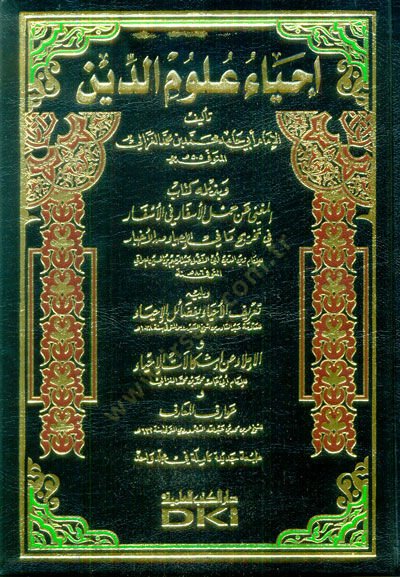 إحياء علوم الدين
تأليف
الإمام أبي حامد محمد بن محمد الغزالي
المتوفى ٥٠٥ هـ
وبذيله كتاب
المغني عن حمل الأسفار في الأسفار
في تخريج ما في الإحياء من الأخبار
ويليه
تعريف الأحياء بفضائل الإحياء
و
الإملاء عن إشكالات الإحياء
و
عوارف المعارف
طبعة جديدة كاملة في مجلد واحد
دار الكتب العلمية
DKi